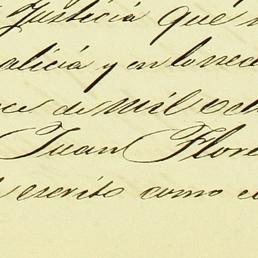 Justicia que
alicia y en lo suce
ce de mil och
Juan Flore
escrito como e